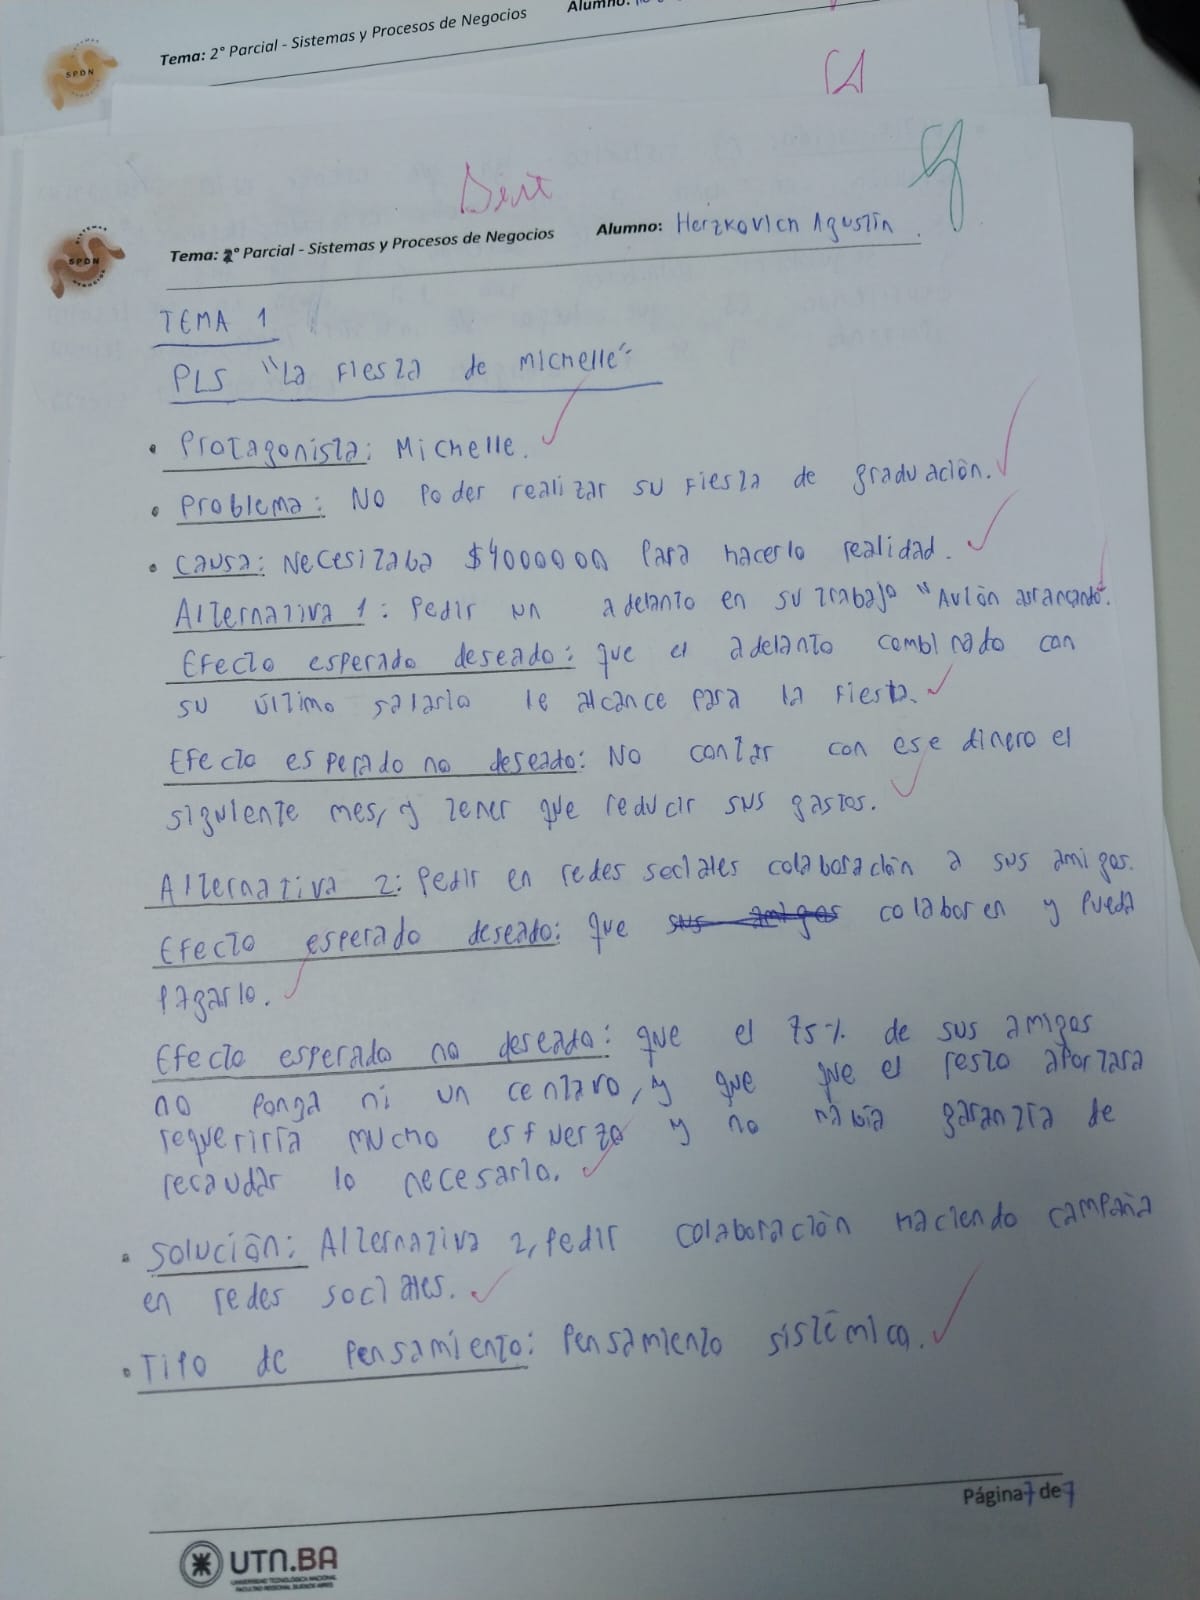 Tema: 2° Parcial - Sistemas y Procesos de Negocios Alumno:
SPDN
Tema: 2° Parcial - Sistemas y Procesos de Negocios Alumno: Herzkovich Agustín.
SISTEMAS
SPDN
NEGOCIOS
TEMA 1
PLS "La Fiesta de Michelle"
• Protagonista: Michelle.
• Problema: No poder realizar su fiesta de graduación.
• Causa: Necesitaba $4000000 para hacerlo realidad.
Alternativa 1: Pedir un adelanto en su trabajo "Avión arrancando".
Efecto esperado deseado: que el adelanto combinado con
su último salario le alcance para la fiesta.
Efecto esperado no deseado: No contar con ese dinero el
siguiente mes, y tener que reducir sus gastos.
Alternativa 2: Pedir en redes sociales colaboración a sus amigos.
Efecto esperado deseado: que sus amigos colaboren y pueda
pagarlo.
Efecto esperado no deseado: que el 75% de sus amigos
no ponga ni un centavo, y que que el resto aportara
requeriría mucho esfuerzo y no había garantía de
recaudar lo necesario.
• Solución: Alternativa 2, pedir colaboración haciendo campaña
en redes sociales.
• Tipo de pensamiento: Pensamiento sistémico.
Página 7 de 7
UTN.BA
UNIVERSIDAD TECNOLÓGICA NACIONAL
FACULTAD REGIONAL BUENOS AIRES